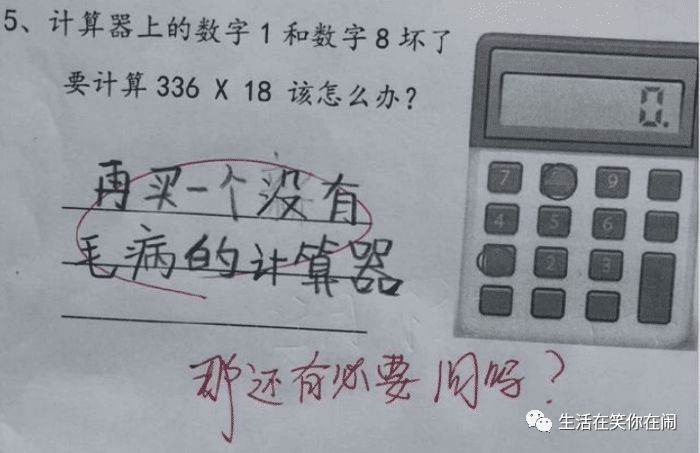 5、计算器上的数字1和数字8坏了
要计算 336 X 18 该怎么办?
再买一个没有
毛病的计算器
那还有必要问吗?
0.
7 9
4 5 6
2 3
生活在笑你在闹